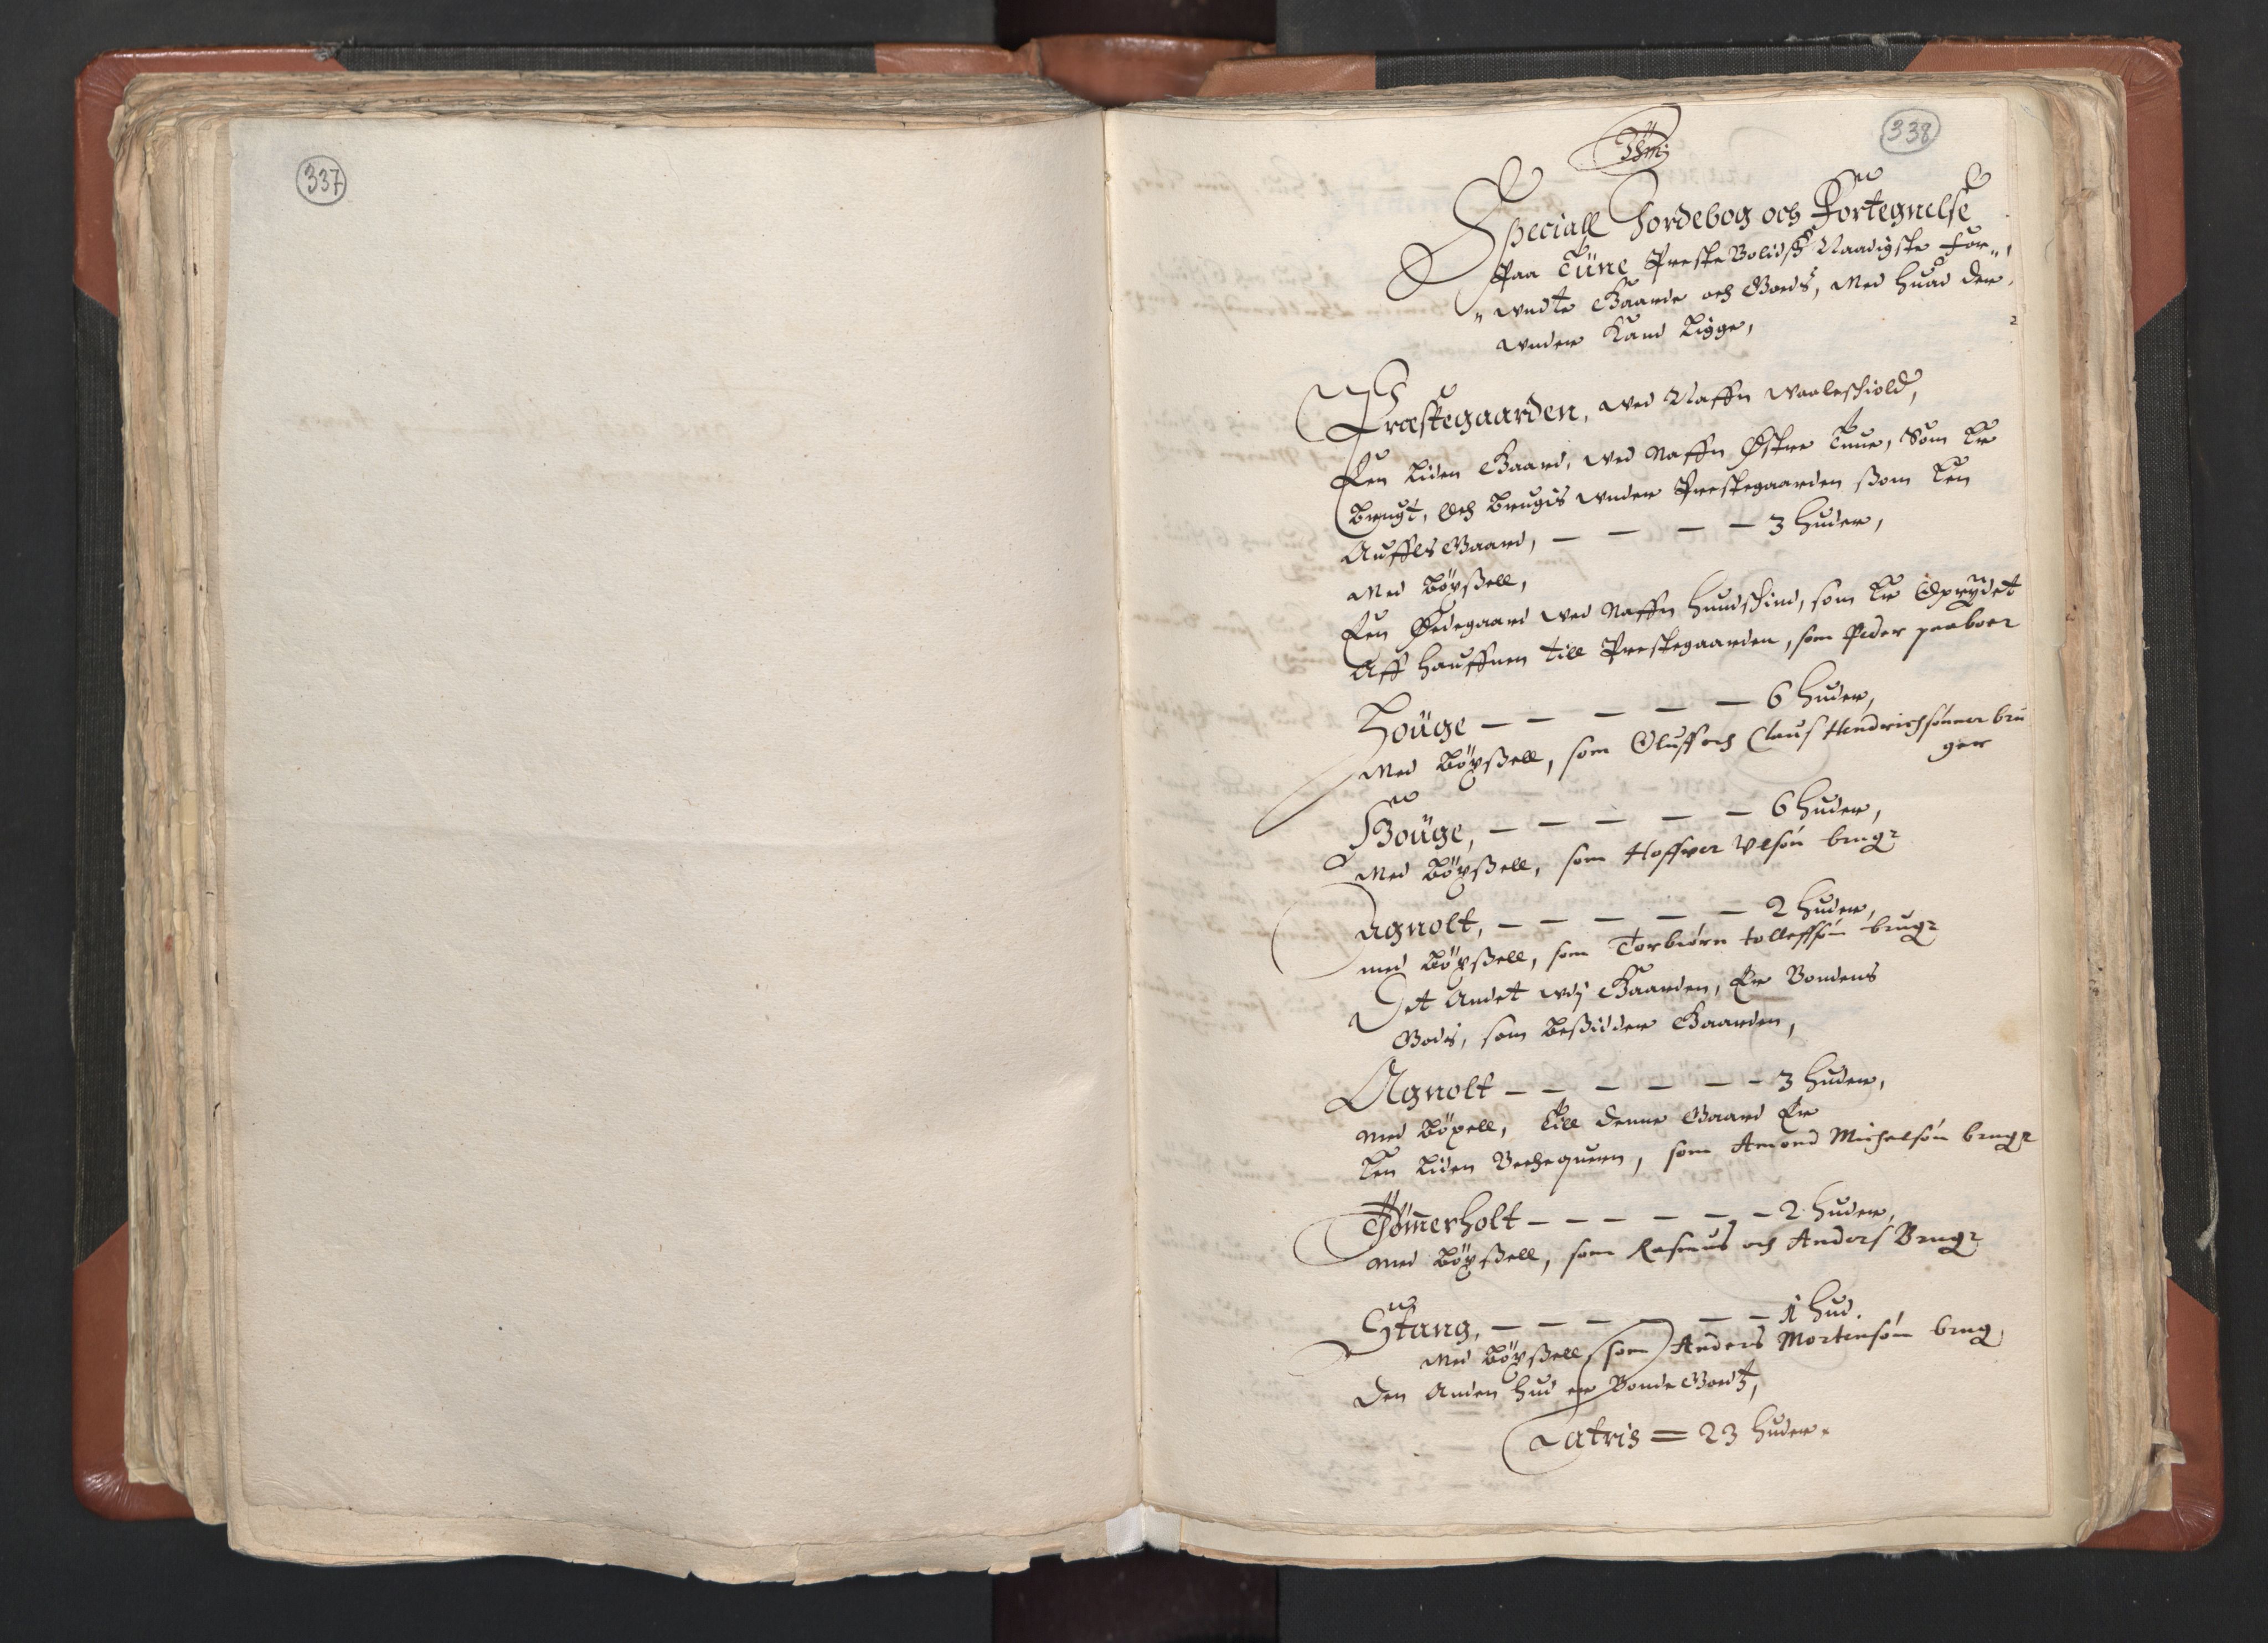 337
338
Speciall Jordebog och Fortegnelse
Paa Tüne PresteBolidß Naadigste For-
undte Gaarde och Gods, Med huad der
under Kand Ligge,
Præstegaarden, ved Naffn Waaleschiold,
Een Liden Gaard, ved Naffn Østre Tune, Som Er
Brugt, Och Brugis under Prestegaarden ßom Een
Auffls Gaard, — — — — 3 huder,
Med Böxßell,
Een Ødegaard ved Naffn hundschind, som Er Opryдet
Aff hauffnen till Prestegaarden, som Peder paaboer
Houge — — — — — 6 huder,
Med Böxßell, som Oluff och Claus Hendrichsönner bru
ger
Houge, — — — — — 6 huder,
Med Böxßell, som Hoffuer Olsön brug
Agnolt, — — — — — 2 huder,
med Böxßell, som Torbiörn tolleffsön brug
Det Andet udj Gaarden, Er Bondens
Gods, som beßidder Gaarden,
Agnolt — — — — — — 3 huder,
med Böxell, till denne Gaard Er
Een Liden Bechequern, som Amond Michelsön brug
Tömmerholt — — — — — — 2 huder,
med Böxßell, som Rasmus och Anders Brug
Stang, — — — — — — 1 hud.
Med Böxßell, som Anders Mortensön brug
Den Anden hud er BondeGodt,
Latris = 23 huder.